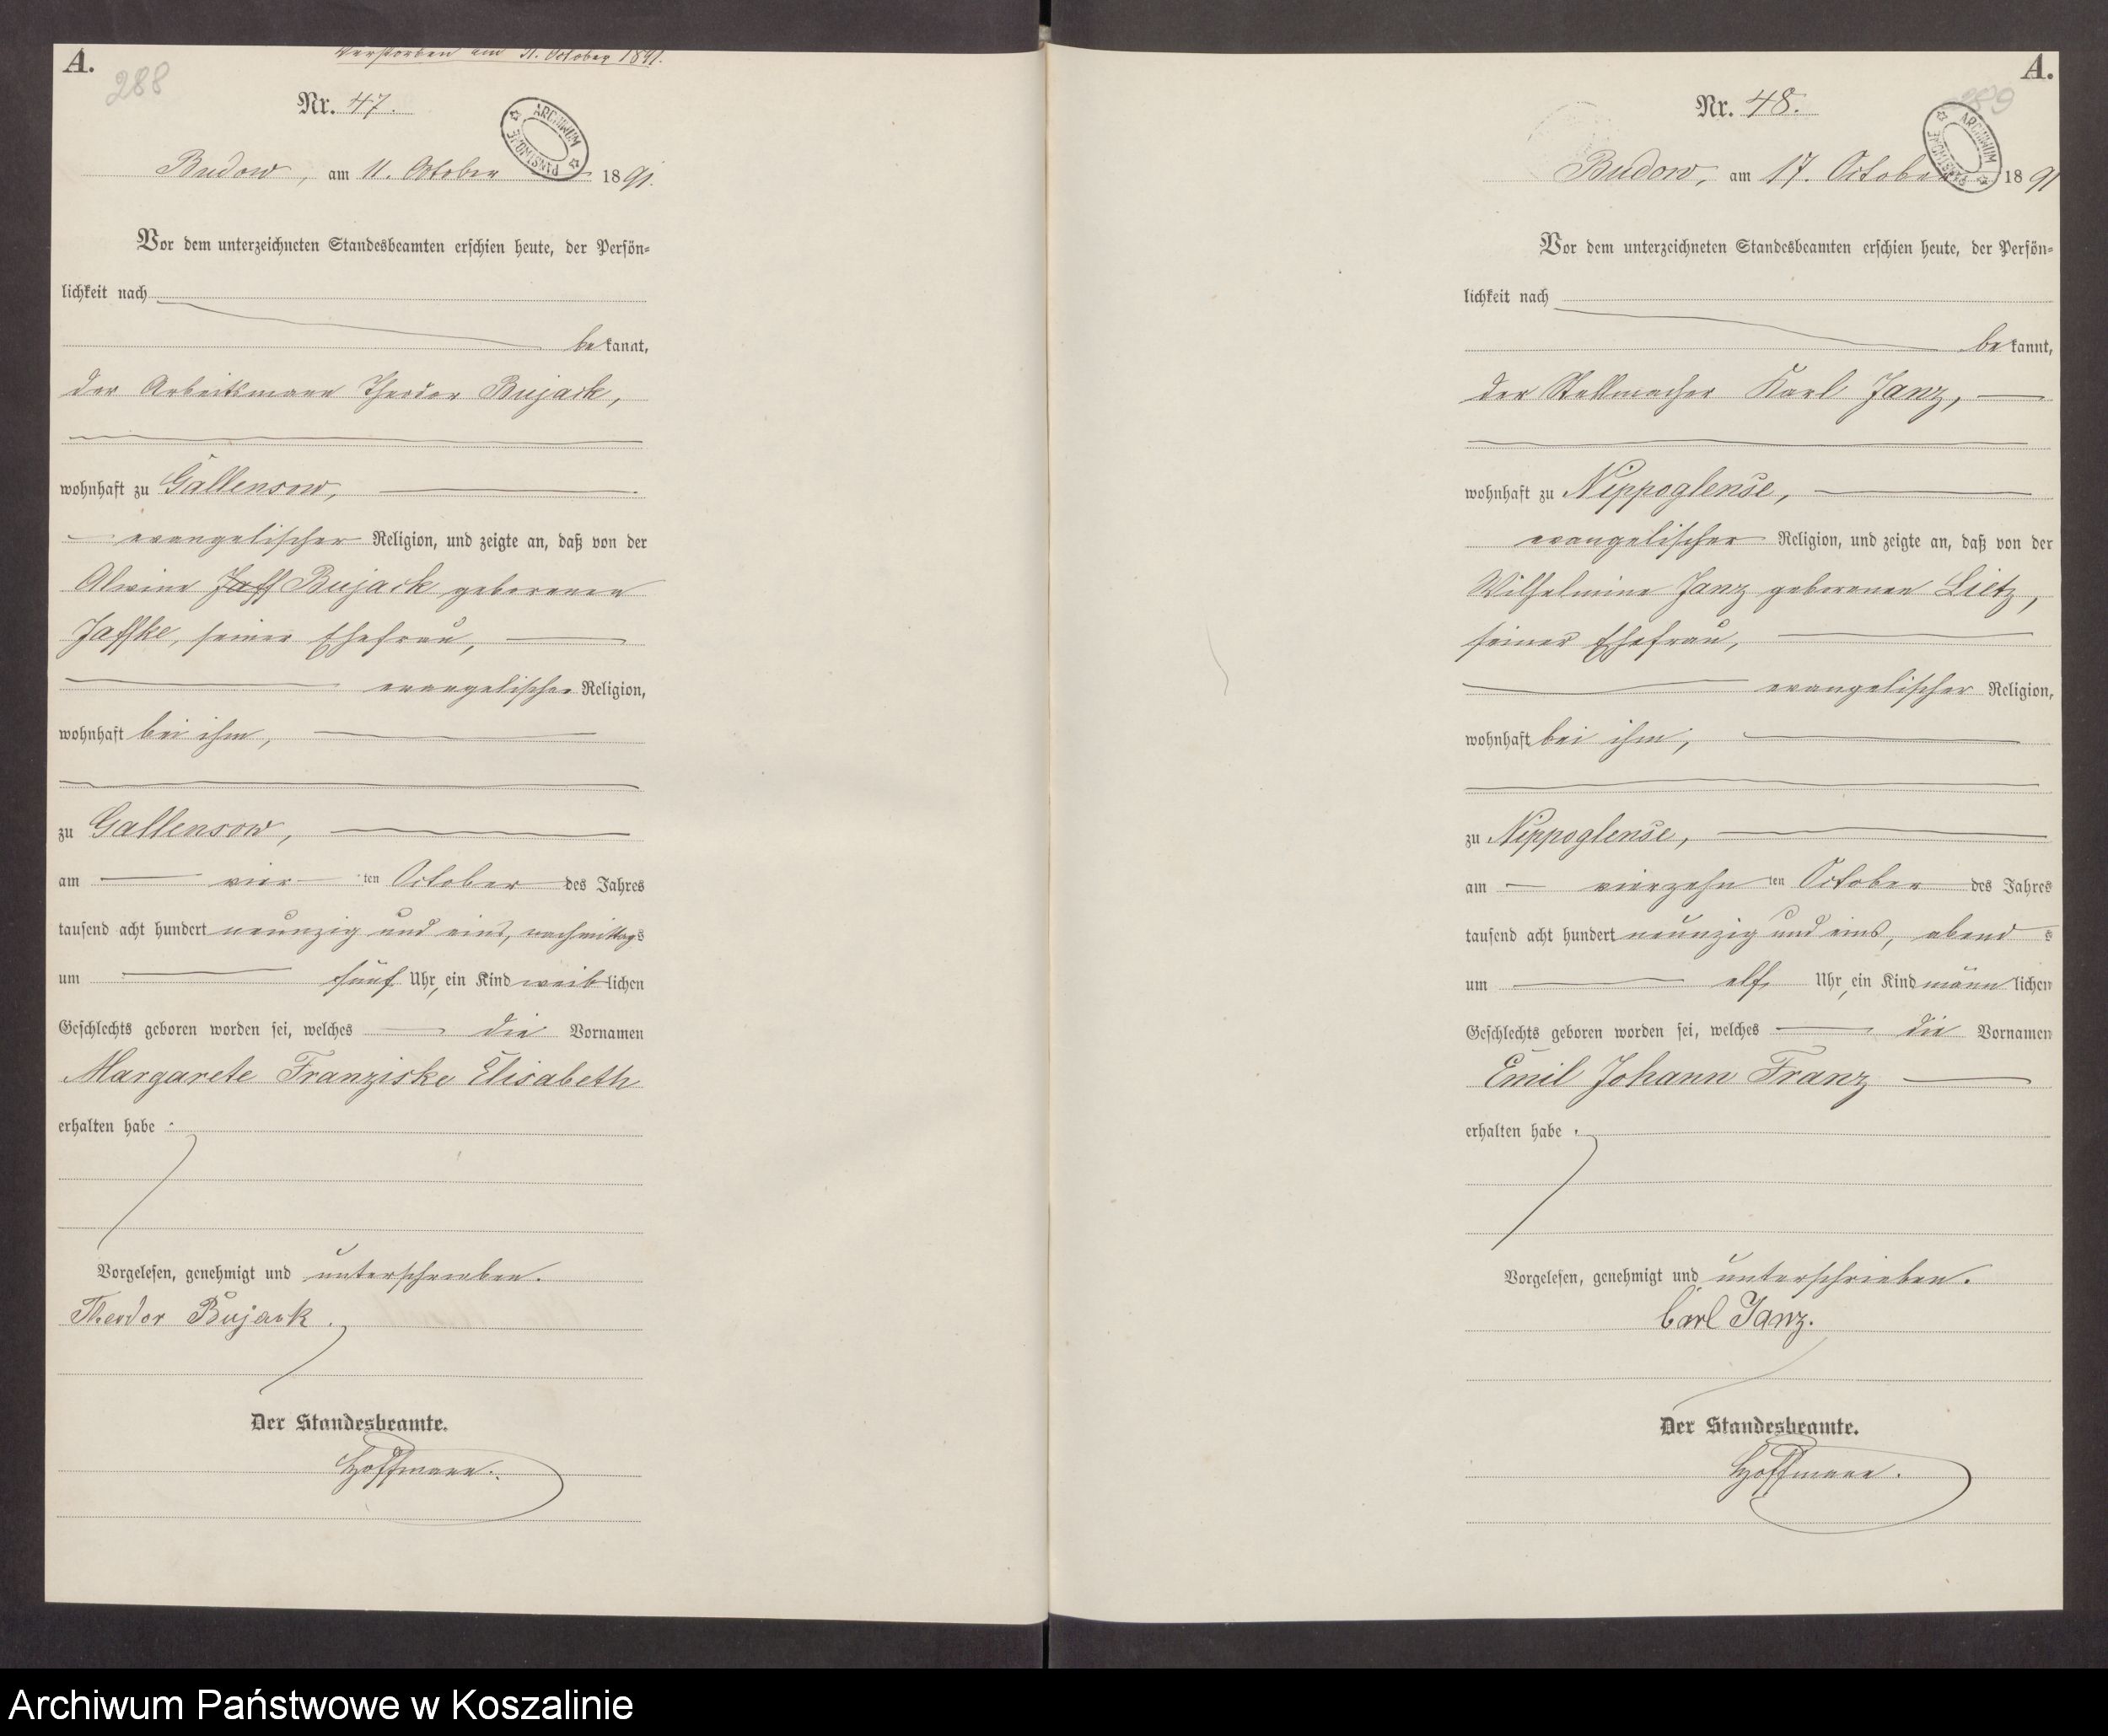 A.
288
Verstorben am 31. October 1891.
Nr. 47.
ARCHIWUM PAŃSTWOWE
Budow, am 11. October 1891.
Vor dem unterzeichneten Standesbeamten erschien heute, der Persön-
lichkeit nach
bekannt,
der Arbeitsmann Theodor Bujack,
wohnhaft zu Gallensow,
evangelischer Religion, und zeigte an, daß von der
Alwine Jaff Bujack geborenen
Jaffke, seiner Ehefrau,
evangelischer Religion,
wohnhaft bei ihm,
zu Gallensow,
am vier ten October des Jahres
tausend acht hundert neunzig und eins, nachmittags
um fünf Uhr, ein Kind weiblichen
Geschlechts geboren worden sei, welches die Vornamen
Margarete Franziske Elisabeth
erhalten habe.
Vorgelesen, genehmigt und unterschrieben.
Theodor Bujack.
Der Standesbeamte.
Hoffmann.
A.
289
Nr. 48.
ARCHIWUM PAŃSTWOWE
Budow, am 17. October 1891
Vor dem unterzeichneten Standesbeamten erschien heute, der Persön-
lichkeit nach
bekannt,
der Stellmacher Karl Janz,
wohnhaft zu Nippoglense,
evangelischer Religion, und zeigte an, daß von der
Wilhelmine Janz geborenen Lietz,
seiner Ehefrau,
evangelischer Religion,
wohnhaft bei ihm,
zu Nippoglense,
am vierzehn ten October des Jahres
tausend acht hundert neunzig und eins, abends
um elf Uhr, ein Kind männlichen
Geschlechts geboren worden sei, welches die Vornamen
Emil Johann Franz
erhalten habe.
Vorgelesen, genehmigt und unterschrieben.
Carl Janz.
Der Standesbeamte.
Hoffmann.
Archiwum Państwowe w Koszalinie